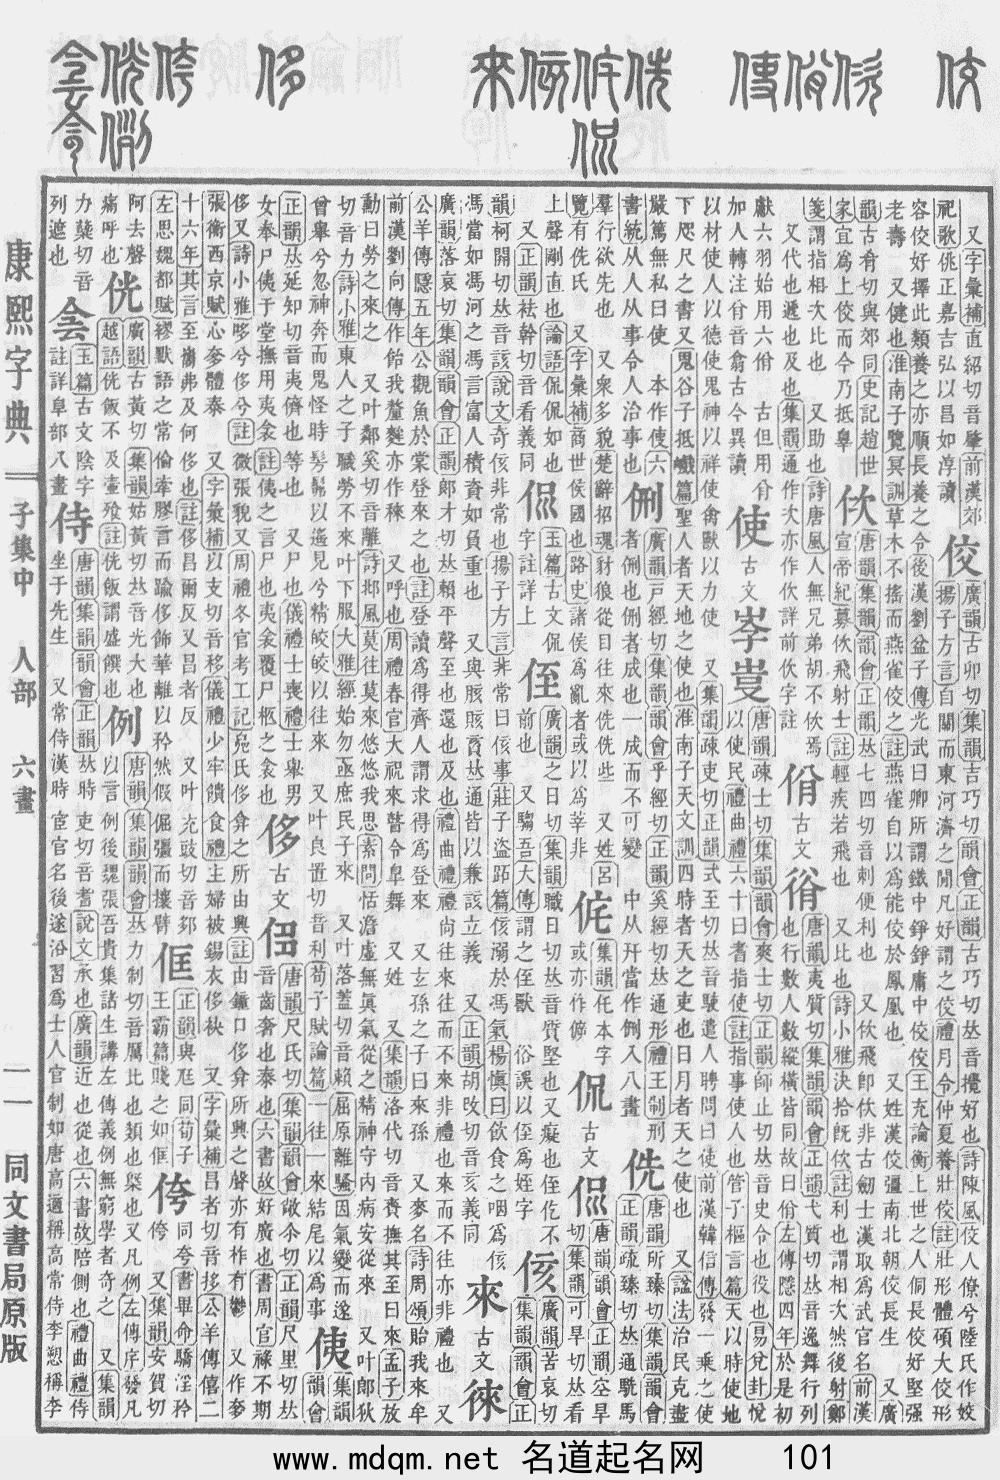 又字彙補直紹切音肇前漢郊
祀歌佻正嘉吉弘以昌如淳讀
佼
廣韻古卯切集韻吉巧切韻會正韻古巧切𠀤音攪好也詩陳風佼人僚兮陸氏作姣
揚子方言自關而東河濟之閒凡好謂之佼禮月令仲夏養壯佼註壯形體碩大佼形
容佼好擇此類養之亦順長養之令後漢劉盆子傳光武曰卿所謂鐵中錚錚庸中佼佼王充論衡上世之人侗長佼好堅强
老壽 又健也淮南子覽冥訓草木不搖而燕雀佼之註燕雀自以爲能佼於鳳凰也 又姓漢佼彊南北朝佼長生 又廣
韻古肴切與郊同史記趙世
家宜爲上佼而今乃抵辠
佽
唐韻集韻韻會正韻𠀤七四切音刺便利也 又佽飛卽佽非古劒士漢取爲武官名前漢
宣帝紀募佽飛射士註輕疾若飛也 又比也詩小雅決拾旣佽註利也謂相次然後射鄭
箋謂指相次比也 又助也詩唐風人無兄弟胡不佽焉
又代也遞也及也集韻通作次亦作佽詳前佽字註
佾
古文
㣜
唐韻夷質切集韻韻會正韻弋質切𠀤音逸舞行列
也行數人數縱橫皆同故曰佾左傳隱四年於是初
獻六羽始用六佾 古但用佾
加人轉注佾音翕古今異讀
使
古文
岺𡴕
唐韻疎士切集韻韻會爽士切正韻師止切𠀤音史令也役也易兌卦悅
以使民禮曲禮六十曰耆指使註指事使人也管子樞言篇天以時使地
以材使人以德使鬼神以祥使禽獸以力使 又集韻疎吏切正韻式至切𠀤音駛遣人聘問曰使前漢韓信傳發一乘之使
下咫尺之書又鬼谷子抵巇篇聖人者天地之使也淮南子天文訓四時者天之吏也日月者天之使也 又諡法治民克盡
嚴篤無私曰使 本作使六
書統从人从事令人治事也
侀
廣韻戸經切集韻韻會乎經切正韻奚經切𠀤通形禮王制刑
者侀也侀者成也一成而不可變 中从幵當作侀入八畫
侁
唐韻所臻切集韻韻會
正韻疏臻切𠀤通駪馬
羣行欲先也 又衆多貌楚辭招魂豺狼從目往來侁侁些 又姓呂
覽有侁氏 又字彙補商世侯國也路史諸侯爲亂者或以爲莘非
侂
集韻仛本字
或亦作𠌶
侃
古文
㑁
唐韻韻會正韻空旱
切集韻可旱切𠀤看
上聲剛直也論語侃侃如也
又正韻袪幹切音看義同
㑁
玉篇古文侃
字註詳上
侄
廣韻之日切集韻職日切𠀤音質堅也又癡也侄仡不
前也 又騶吾大傳謂之侄獸 俗誤以侄爲姪字
侅
廣韻苦哀切
集韻韻會正
韻柯開切𠀤音該說文奇侅非常也揚子方言非常曰侅事莊子盜跖篇侅溺於馮氣楊愼曰飮食之咽爲侅
馮當如馮河之馮言富人積資如負重也 又與胲賅賌𠀤通皆以兼該立義 又正韻胡改切音亥義同
來
古文
徠
廣韻落哀切集韻韻會正韻郞才切𠀤賴平聲至也還也及也禮曲禮禮尚往來往而不來非禮也來而不往亦非禮也 又
公羊傳隱五年公觀魚於棠登來之也註登讀爲得齊人謂求得爲登來 又玄孫之子曰來孫 又麥名詩周頌貽我來牟
前漢劉向傳作飴我釐麰亦作秾 又呼也周禮春官大祝來瞽令臯舞 又姓 又集韻洛代切音賚撫其至曰來孟子放
勳曰勞之來之 又叶鄰奚切音離詩邶風莫往莫來悠悠我思素問恬澹虛無眞氣從之精神守內病安從來 又叶郞狄
切音力詩小雅東人之子職勞不來叶下服大雅經始勿亟庶民子來 又叶落蓋切音賴屈原離騷因氣變而遂
曾舉兮忽神奔而鬼怪時髣髴以遥見兮精皎皎以往來 又叶良置切音利荀子賦論篇一往一來結尾以爲事
侇
集韻
韻會
正韻𠀤延知切音夷儕也等也 又尸也儀禮士喪禮士舉男
女奉尸侇于堂撫用夷衾註侇之言尸也夷衾覆尸柩之衾也
侈
古文
㑰
唐韻尺氏切集韻韻會敞尒切正韻尺里切𠀤
音齒奢也泰也六書故好廣也書周官祿不期
侈又詩小雅哆兮侈兮註微張貌又周禮冬官考工記鳧氏侈弇之所由興註由鐘口侈弇所興之聲亦有柞有鬱 又作奓
張衡西京賦心奓體泰 又字彙補以支切音移儀禮少牢饋食禮主婦被錫衣侈袂 又字彙補昌者切音扯公羊傳僖二
十六年其言至巂弗及何侈也註侈昌爾反又昌者反 又叶充豉切音𨚍
左思魏都賦繆默語之常倫牽膠言而踰侈飾華離以矜然假倔彊而攘臂
侱
正韻與尫同荀子
王霸篇賤之如侱
侉
同夸書畢命驕淫矜
侉 又集韻安賀切
阿去聲
痛呼也
侊
廣韻古黃切集韻姑黃切𠀤音光大也
越語侊飯不及壷飧註侊飯謂盛饌也
例
唐韻集韻韻會𠀤力制切音厲比也類也槩也又凡例左傳序發凡
以言例後魏張吾貴集諸生講左傳義例無窮學者奇之 又集韻
力蘖切音
列遮也
侌
玉篇古文陰字
註詳阜部八畫
侍
唐韻集韻韻會正韻𠀤時吏切音蒔說文承也廣韻近也從也六書故陪側也禮曲禮侍
坐于先生 又常侍漢時宦官名後遂沿習爲士人官制如唐高適稱高常侍李愬稱李
康熙字典
子集中 人部 六畫
一一
同文書局原版
www.mdqm.net 名道起名网 101